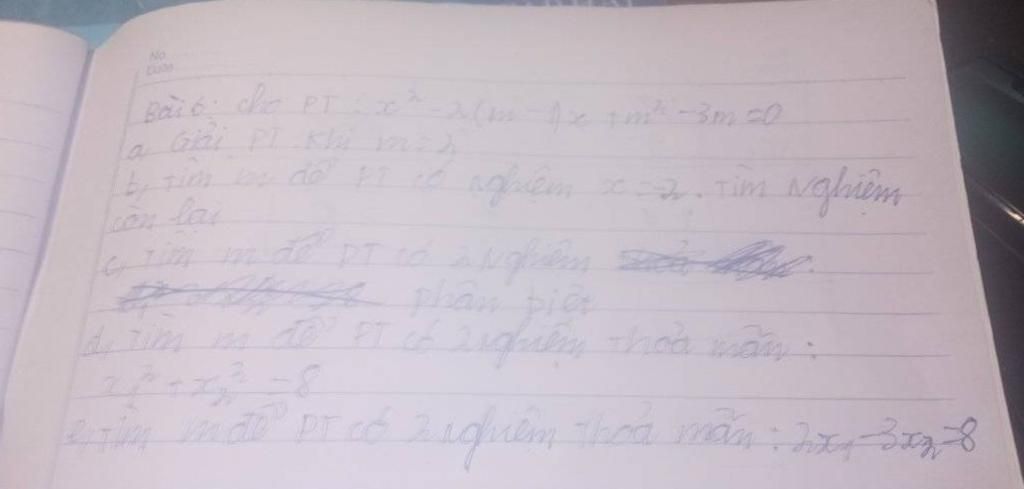 No
Date
Bài 6: cho PT : x² - 2(m - 1)x + m² - 3m = 0
a, Giải PT khi m = 2
b, Tìm m để PT có nghiệm x = -2. Tìm Nghiệm
còn lại
c, Tìm m để PT có 2 Nghiệm
phân biệt
d, Tìm m để PT có 2 nghiệm thoả mãn :
x₁² + x₂² = 8
e, Tìm m để PT có 2 nghiệm thoả mãn : 2x₁ - 3x₂ = 8